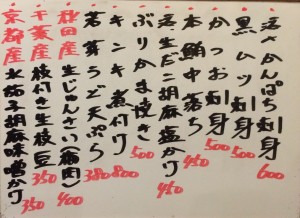 活さかんぱち刺身 600
黒ムツ刺身 500
かつお刺身 500
本鮪中落ち 450
活生だこ胡麻塩かけ 450
ぶりかま焼き 500
キンキ煮付け 800
若芽うど天ぷら 380
秋田産生じゅんさい(梅肉) 400
千葉産枝付き生枝豆 350
京都産水茄子胡麻味噌かけ 350